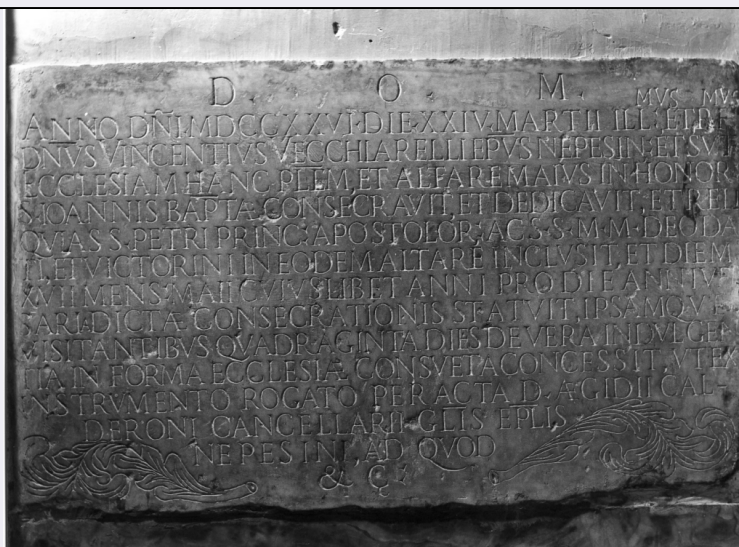 D O M
MVS MVS
ANNO DÑI MDCCXXVI DIE XXIV MARTII ILL ET
DNVS VINCENTIVS VECCHIARELLI EPVS NEPESIN ET SVT
ECCLESIAM HANC PLEM ET ALTARE MAIVS IN HONOR
S IOANNIS BAPTÆ CONSECRAVIT, ET DEDICAVIT ET RELI
QVIAS S. PETRI PRINC APOSTOLOR, AC S S M M DEODA
TI ET VICTORINI IN EODEM ALTARE INCLVSIT, ET DIEM
XVII MENS MAII CVIVSLIBET ANNI PRO DIE ANNIVER
SARIA DICTÆ CONSECRATIONIS STATVIT, IPSAMQVE
VISITANTIBVS QVADRAGINTA DIES DE VERA INDVLGEN
TIA IN FORMA ECCLESIÆ CONSVETA CONCESSIT, VT EX
INSTRVMENTO ROGATO PER ACTA D. ÆGIDII CAL-
DERONI CANCELLARII GLIS EPLIS
NEPESINI, AD QVOD
& C